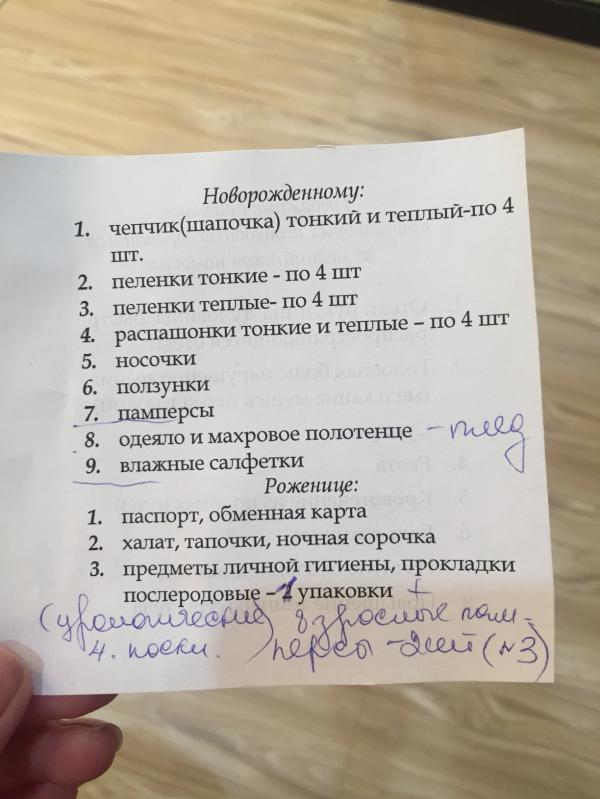 Новорожденному:
1. чепчик(шапочка) тонкий и теплый-по 4
шт.
2. пеленки тонкие - по 4 шт
3. пеленки теплые- по 4 шт
4. распашонки тонкие и теплые – по 4 шт
5. носочки
6. ползунки
7. памперсы
8. одеяло и махровое полотенце – плед
9. влажные салфетки
Роженице:
1. паспорт, обменная карта
2. халат, тапочки, ночная сорочка
3. предметы личной гигиены, прокладки
послеродовые – упаковки +
(урологические) взрослые пам-
4. носки. персы – 2шт (№3)